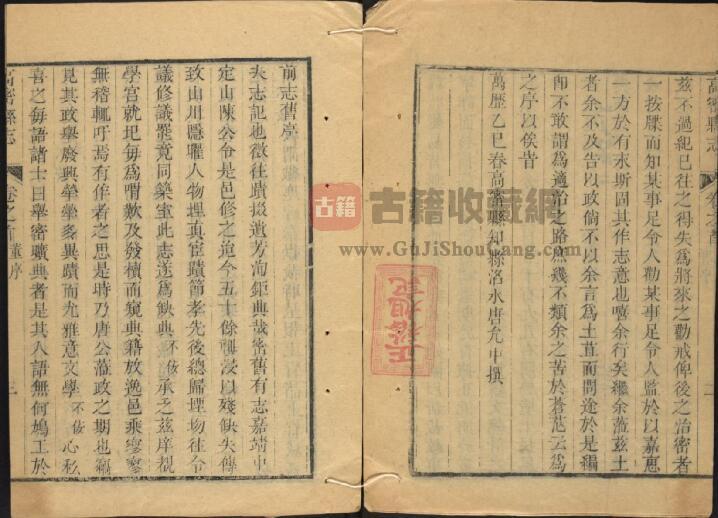 高密縣志 卷之首 序 二
茲不過紀已往之得失為將來之勸戒俾後之治密者
一按牒而知某事足令人勸某事足令人監於以嘉惠
一方於有永斯固其作志意也嘻余行矣繼余蒞茲土
者余不及告以政倘不以余言為土苴而問途於是編
即不敢謂為適治之路庶幾不類余之苦於蒼茫云為
之序以俟昔
萬歷乙巳春高密縣知縣洛水唐允中撰
前志舊序
夫志記也徵往蹟掇遺芳洵鉅典哉密舊有志嘉靖中
定山陳公令是邑修之迨今五十餘禩浸以殘缺失傳
致山川隱曜人物埋真宦蹟節孝先後總歸堙坳往令
議修議罷竟同築室此志遂為缺典不佞承乏茲庠視
學宮就圯每為喟歎及發櫝而窺典籍放逸邑乘寥寥
無稽輒吁焉有作者之思是時乃唐公蒞政之期也竊
見其政舉廢興犖犖多異蹟而尤雅意文學不佞心私
喜之每語諸士曰舉密曠典者是其人語無何鳩工於
高密縣志 卷之首 董序 三
古籍 古籍收藏网
www.GuJiShouCang.com